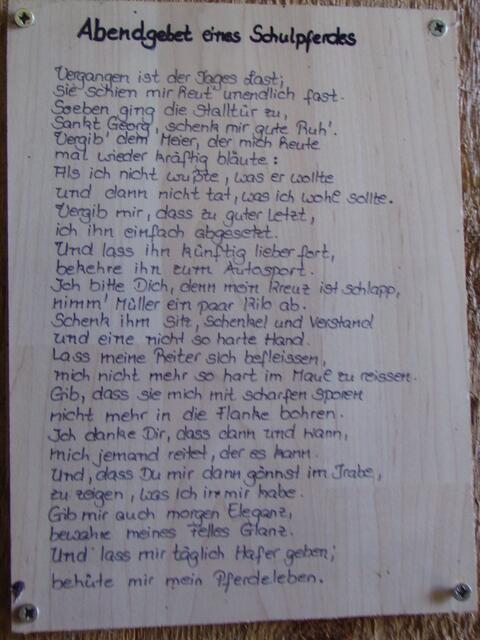 Abendgebet eines Schulpferdes
Vergangen ist der Tages Last;
sie schien mir heut' unendlich fast.
Soeben ging die Stalltür zu,
Sankt Georg, schenk mir gute Ruh'.
Vergib' dem Meier, der mich heute
mal wieder kräftig bläute:
Als ich nicht wußte, was er wollte
und dann nicht tat, was ich wohl sollte.
Vergib mir, dass zu guter Letzt,
ich ihn einfach abgesetzt.
Und lass ihn künftig lieber fort,
bekehre ihn zum Autosport.
Ich bitte Dich, denn mein Kreuz ist schlapp,
nimm' Müller ein paar Kilo ab.
Schenk ihm Sitz, Schenkel und Verstand
und eine nicht so harte Hand.
Lass meine Reiter sich befleissen,
mich nicht mehr so hart im Maul zu reissen.
Gib, dass sie mich mit scharfen Sporen
nicht mehr in die Flanke bohren.
Ich danke Dir, dass dann und wann,
mich jemand reitet, der es kann.
Und, dass Du mir dann gönnst im Trabe,
zu zeigen, was ich in mir habe.
Gib mir auch morgen Eleganz,
bewahre meines Felles Glanz.
Und lass mir täglich Hafer geben;
behüte mir mein Pferdeleben.